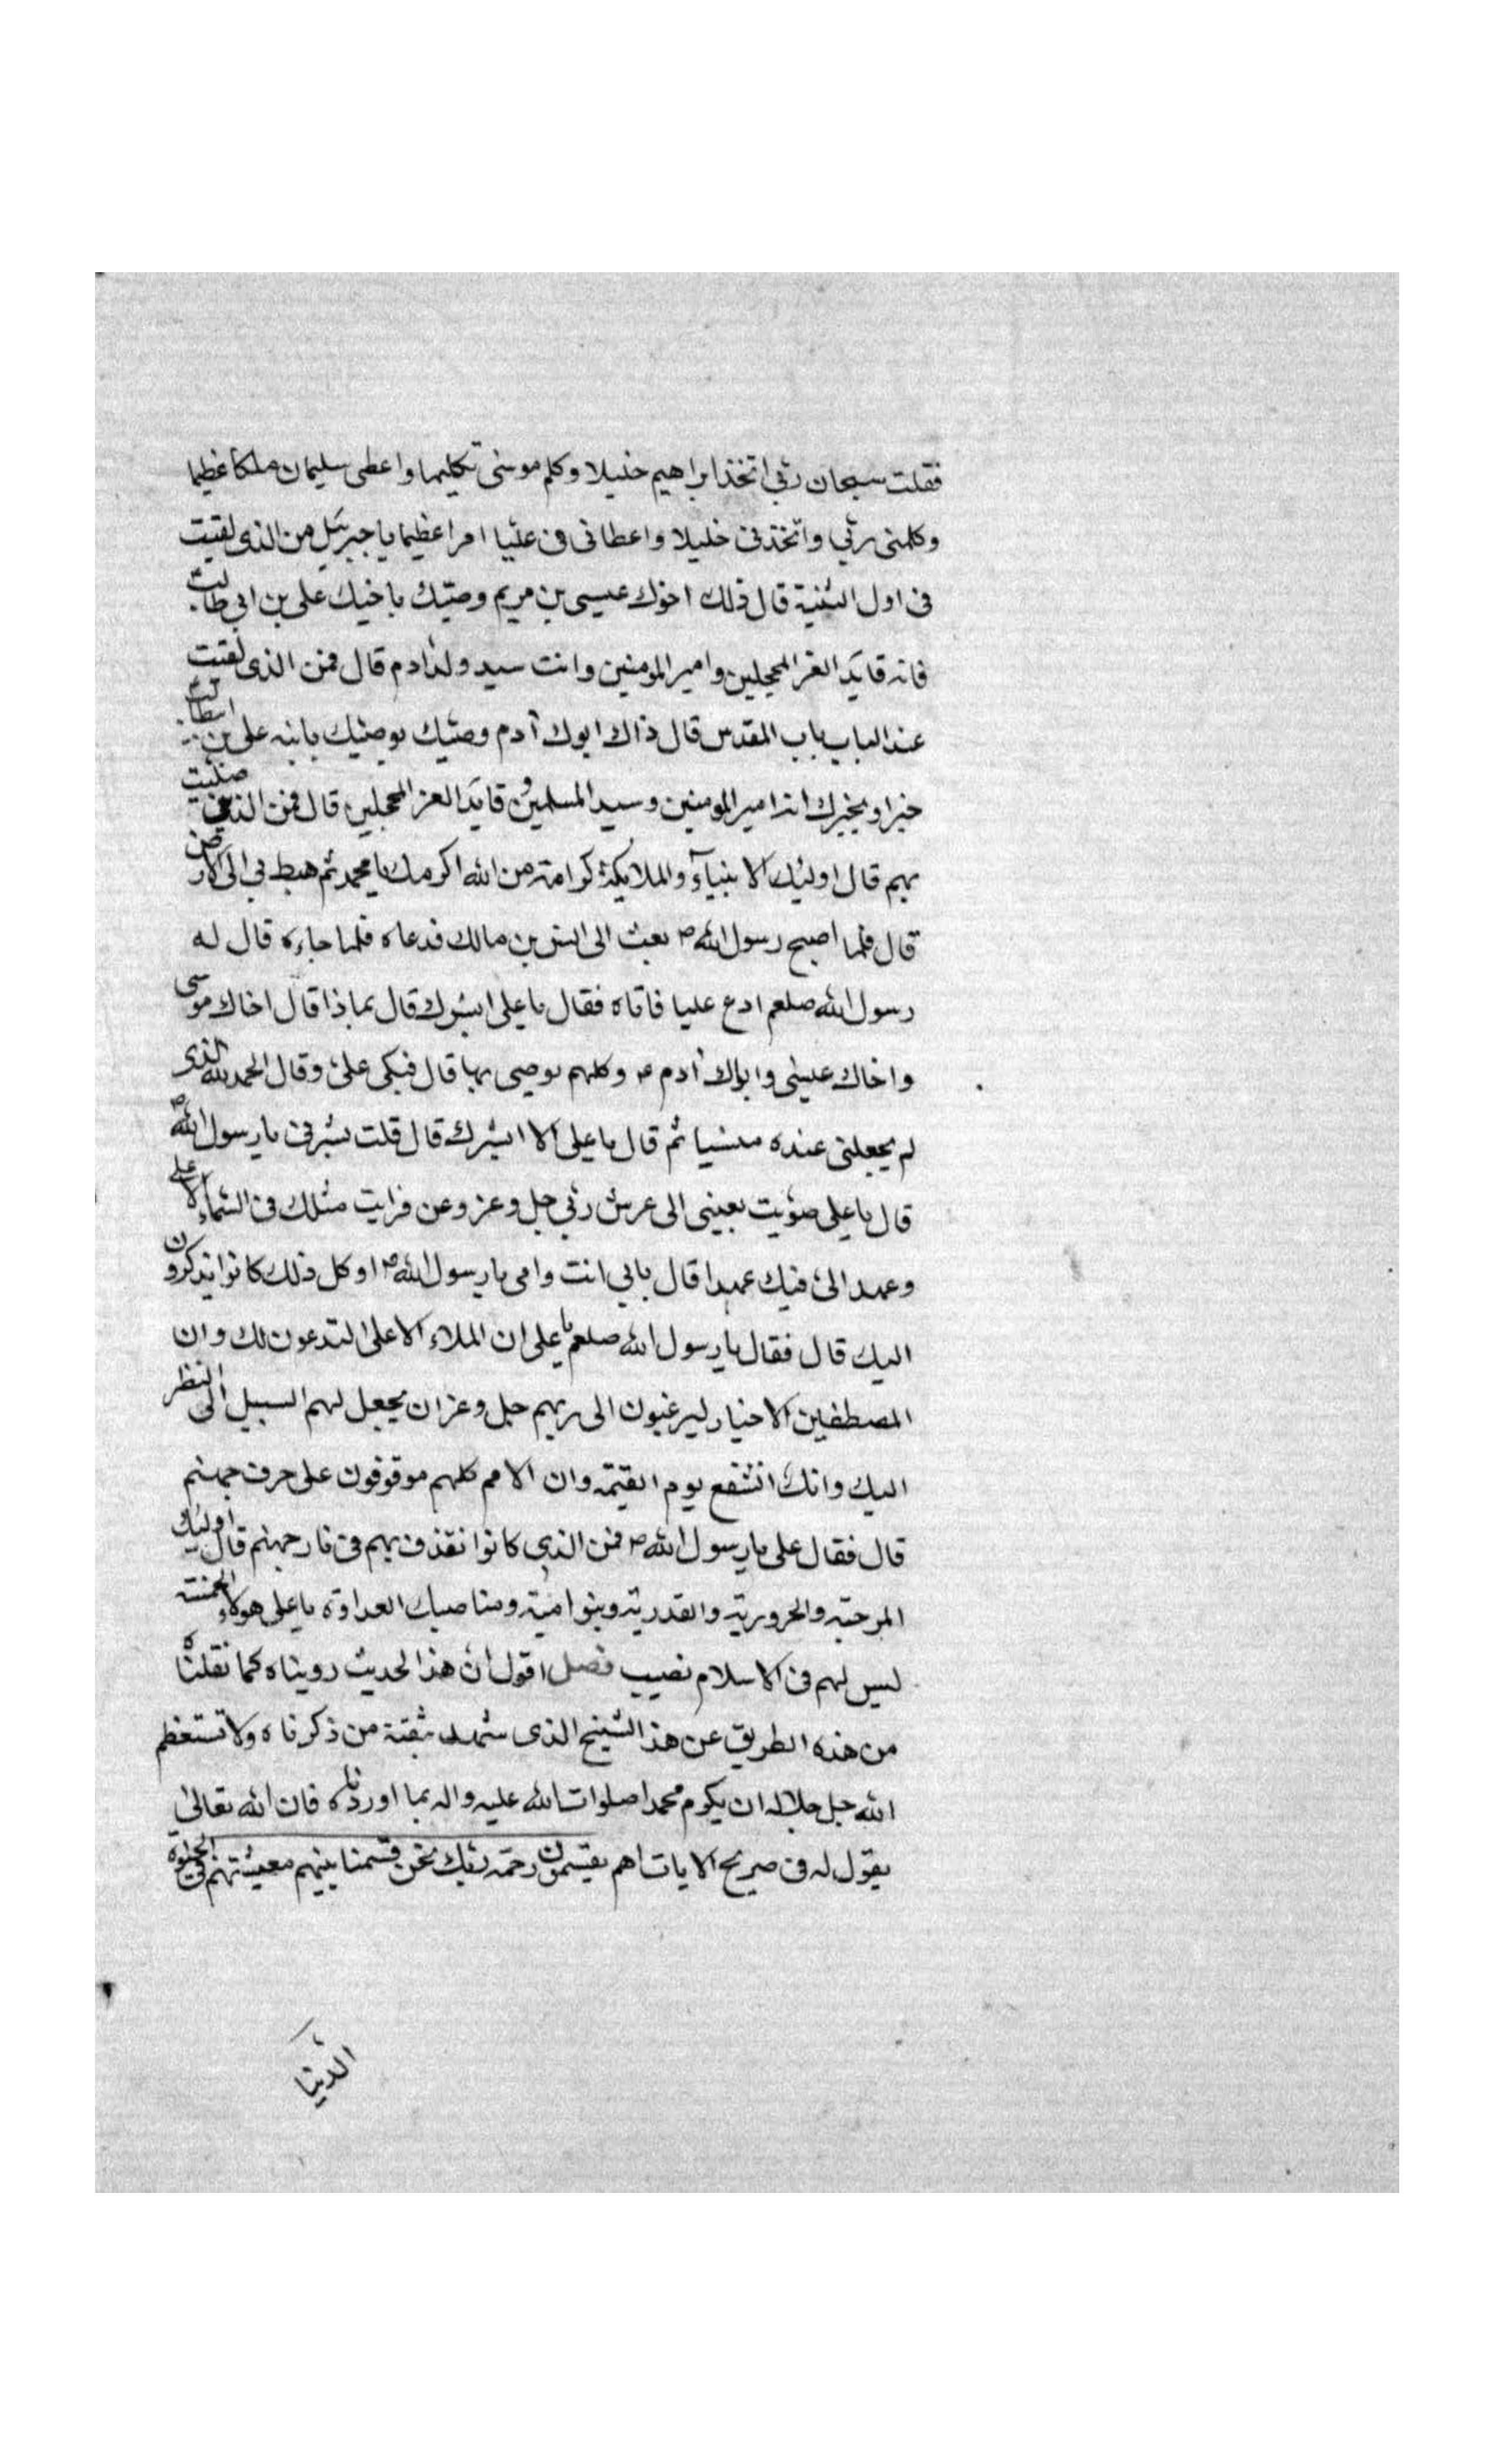 فقلت سبحان ربي اتخذ ابراهيم خليلا وكلم موسى تكليما واعطى سليمان ملكا عظيما
وكلمني ربي واتخذني خليلا واعطاني في عليا امرا عظيما يا جبرئيل من الذي لقيت
في اول الثنية قال ذلك اخوك عيسى بن مريم وصيك باخيك على بن ابي طالب
فانه قايد الغر المحجلين وامير المومنين وانت سيد ولد ادم قال فمن الذي لقيت
عند الباب باب المقدس قال ذاك ابوك آدم وصيك يوصيك بابنه على بن ابيطالب
خيرا ويخبرك انه امير المومنين وسيد المسلمين وقايد الغر المحجلين قال فمن الذين صليت
بهم قال اوليك الانبياء والملايكة كرامة من الله اكرمك يا محمد ثم هبط بي الى الارض
قال فلما اصبح رسول الله ص بعث الى انس بن مالك فدعاه فلما جاءه قال له
رسول الله صلعم ادع عليا فاتاه فقال يا على ابشرك قال بماذا قال اخاك موسى
واخاك عيسى واباك آدم ع وكلهم يوصي بها قال فبكى على وقال الحمد لله الذي
لم يجعلني عنده منسيا ثم قال يا على الا ابشرك قال قلت بشرني يا رسول الله ص
قال يا على صوبت بعيني الى عرش ربي جل وعز وعن فرايت مثلك في السماء الاعلى
وعهد الى فيك عهدا قال بابي انت وامي يا رسول الله ص اوكل ذلك كانوا يذكرون
اليك قال فقال يا رسول الله صلعم يا على ان الملاء الاعلى لتدعون لك وان
المصطفين الاخيار ليرغبون الى ربهم جل وعز ان يجعل لهم السبيل الى النظر
اليك وانك لتشفع يوم القيمة وان الامم كلهم موقوفون على حرف جهنم
قال فقال على يا رسول الله ص فمن الذي كانوا نقذف بهم في نار جهنم قال اوليك
المرجئة والحرورية والقدرية وبنو امية ومناصبك العداوة يا على هولاء الخمسة
ليس لهم في الاسلام نصيب فصل اقول ان هذا الحديث رويناه كما نقلناه
من هذه الطريق عن هذا الشيخ الذي شهد بثقته من ذكرناه ولا تستعظم
الله جل جلاله ان يكرم محمدا صلوات الله عليه واله بما اوردناه فان الله تعالى
يقول له في صريح الايات اهم يقسمون رحمة ربك نحن قسمنا بينهم معيشتهم في الحيوة
الدنيا